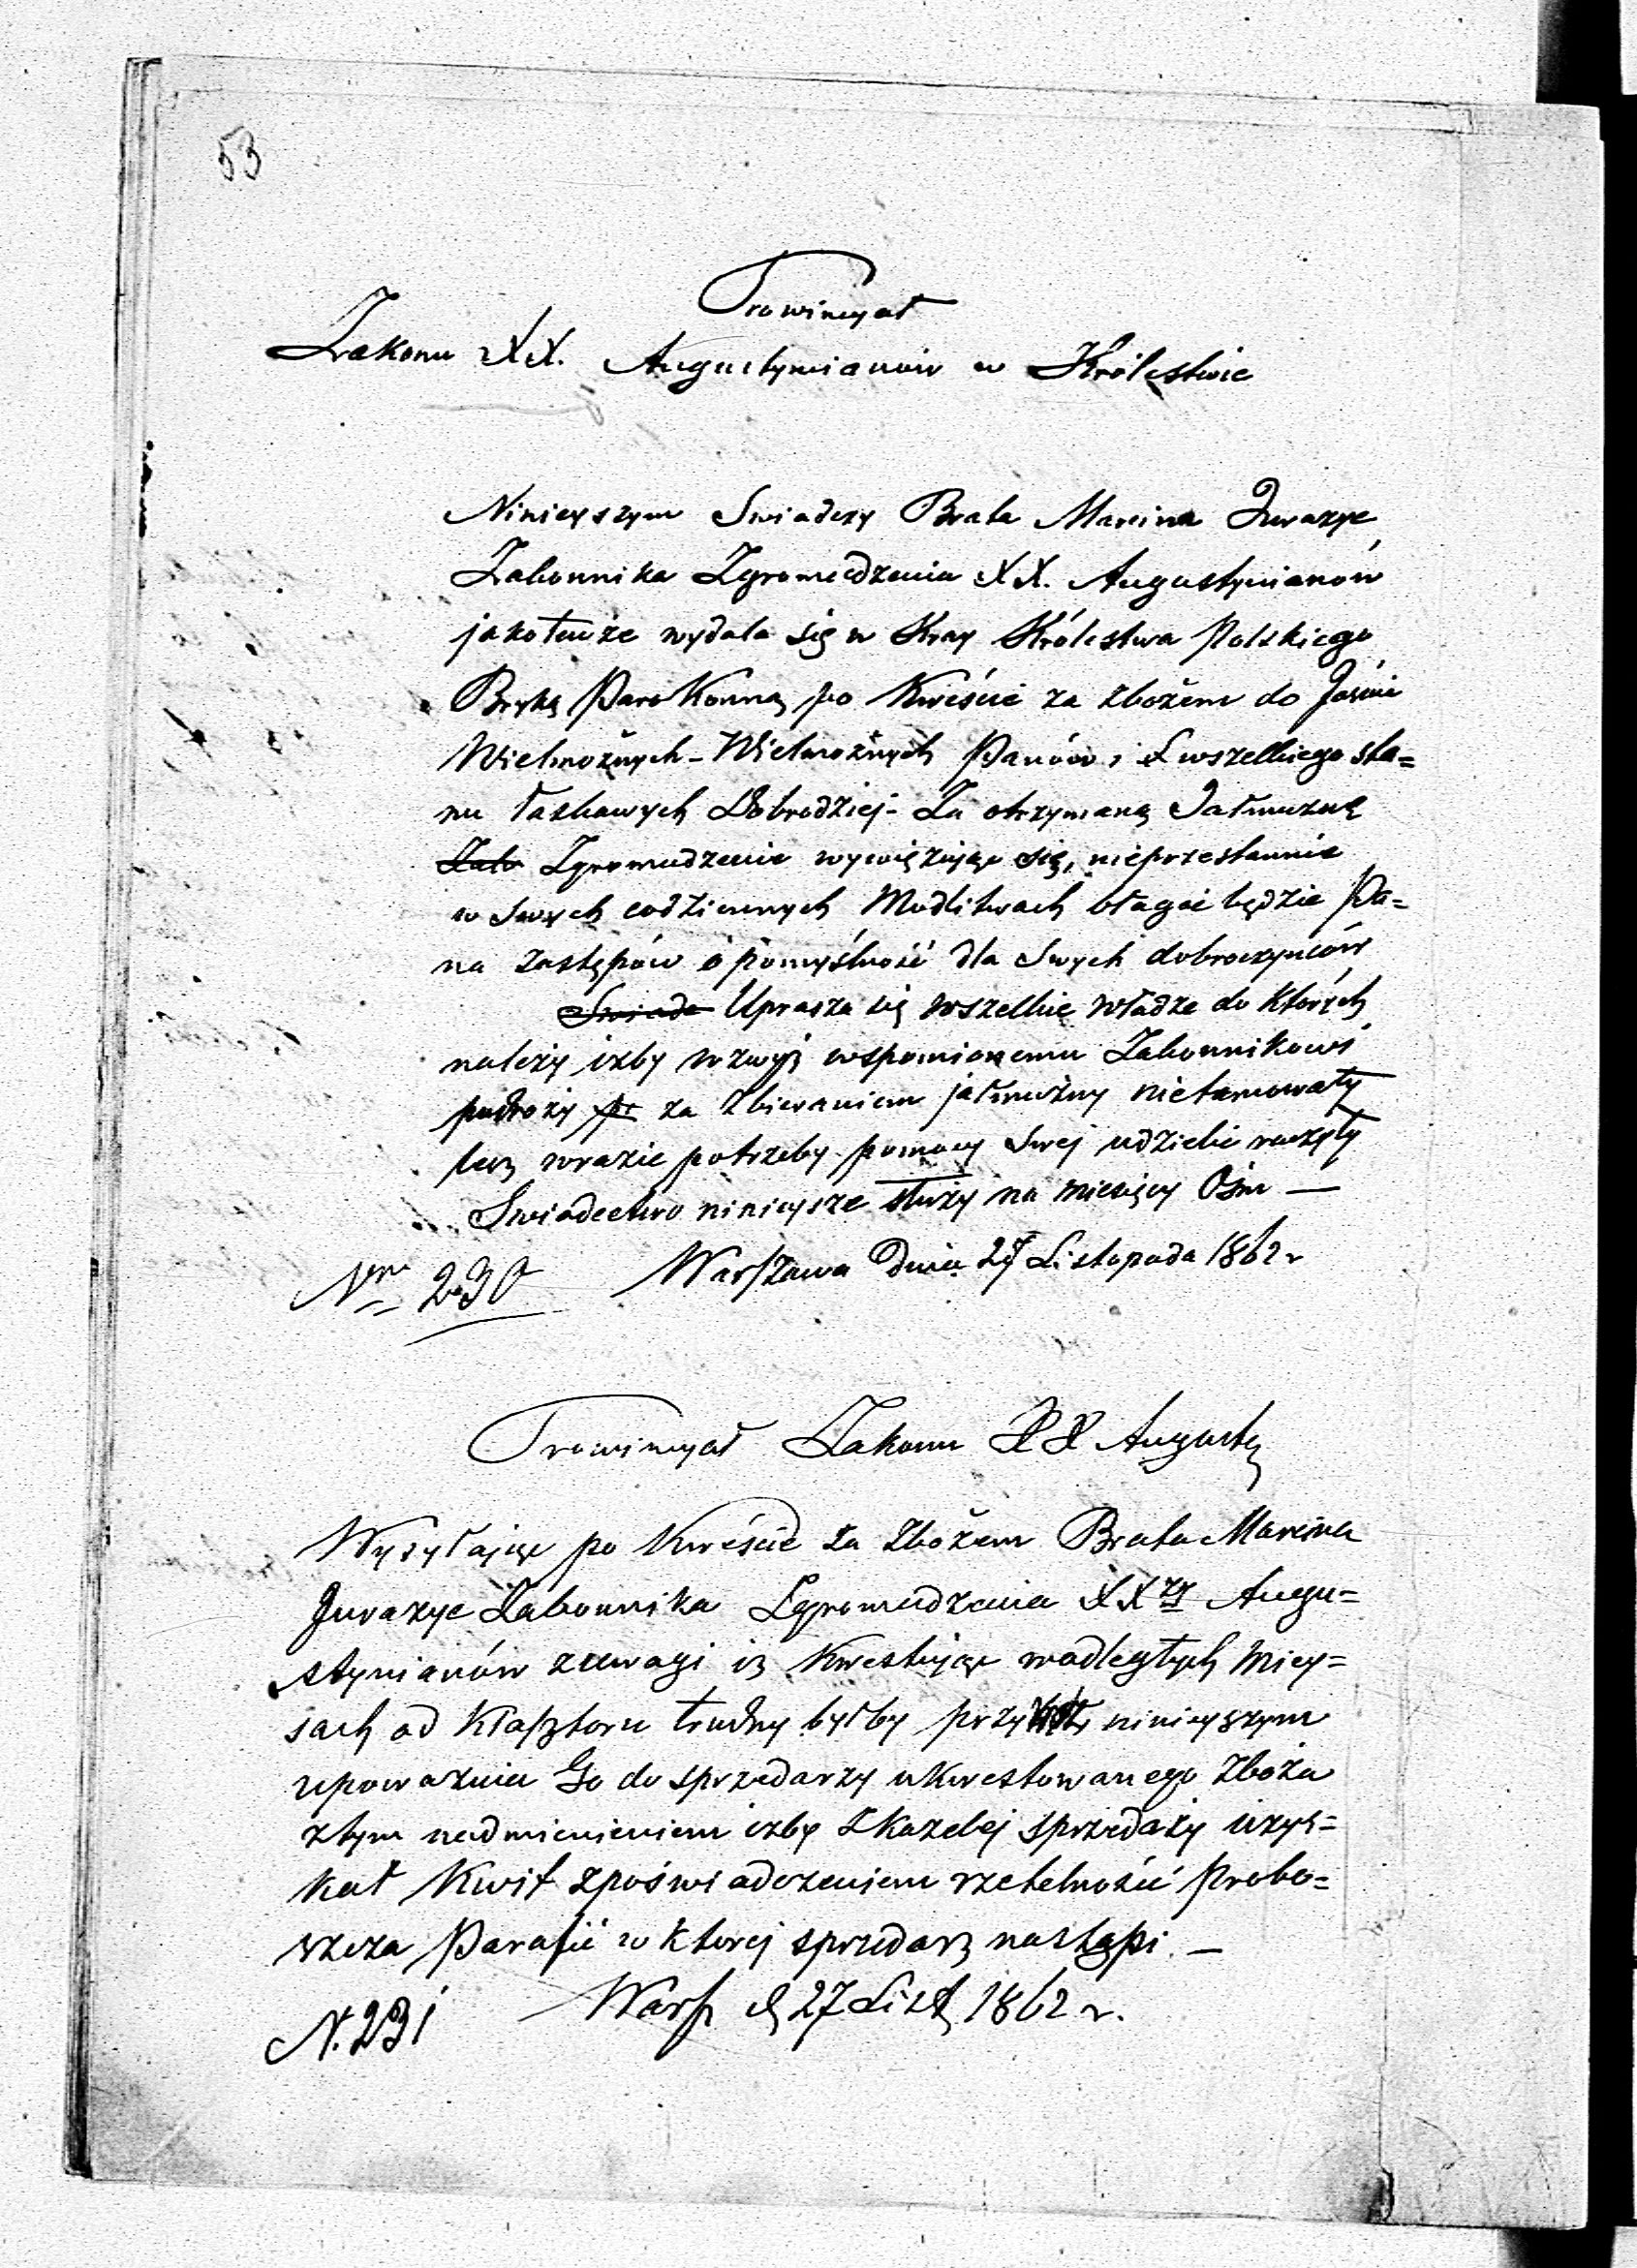 53
Prowincyał
Zakonu XX. Augustynianów w Królestwie
Ninieyszym Swiadczy Brata Marcina Jurazyc
Zakonnika Zgromadzenia XX. Augustynianów
jako tenże wydala się w Kray Królestwa Polskiego
Bryką Paro Konną po Kweście za zbożem do Jaśnie
Wielmożnych - Wielmożnych Panów i wszelkiego sta=
nu łaskawych Dobrodziej - Za otrzymaną Jałmużnę
Zgromadzenie wywięzując się, nieprzestannie
w swych codziennych Modlitwach błagać będzie Pa=
na zastępów o pomyślność dla Swych dobroczyńców
Swiade Uprasza się wszelkie władze do których
należy izby wzwyż wspomionemu Zakonnikowi
podroży za zbieraniem jałmużny nietamowały
lecz wrazie potrzeby pomocy swej udzielić raczyły
Swiadectwo ninieysze służy na miesięcy Ośm —
Nro 230 Warszawa Dnia 27 Listopada 1862 r
Prowincyał Zakonu XX Augusty
Wysyłając po Kweście za zbożem Brata Marcina
Jurazyc Zakonnika Zgromadzenia XX Augu=
stynianów zuwagi iż Kwestując wodległych miey=
scach od Klasztoru trudny byłby ninieyszym
upoważnia Go do sprzedarzy ukwestowanego zboża
ztym nadmienieniem izby zkażdej sprzedaży uzys=
kał Kwit zpoświadczeniem rzetelności Probo=
szcza Parafii w ktorej sprzedarz nastąpi. —
N. 231 Warsz d 27 List 1862 r.